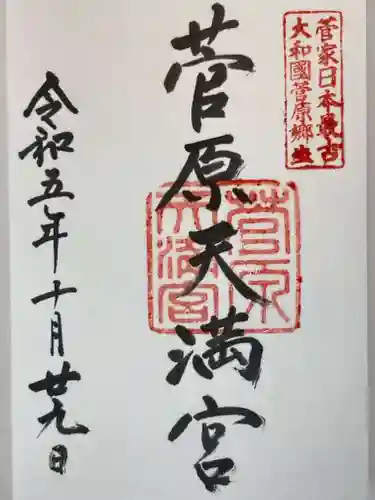 菅家日本最古
大和國菅原郷
菅原天満宮
菅原
天満宮
令和五年十月廿九日